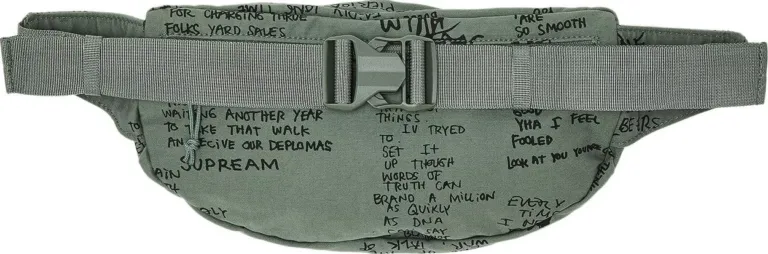 FOR CHARGING THRUE
FOLKS YARD SALES
WAITING ANOTHER YEAR
TO TAKE THAT WALK
AN RECIVE OUR DEPLOMAS
SUPREAM
THINGS.
IV TRYED
TO
SET IT
UP THOUGH
WORDS OF
TRUTH CAN
BRAND A MILLION
AS QUIKLY
AS DNA
ARE
SO SMOOTH
GOOD
YHA I FEEL
FOOLED
LOOK AT YOU
BEARS
EVERY
TIME
I